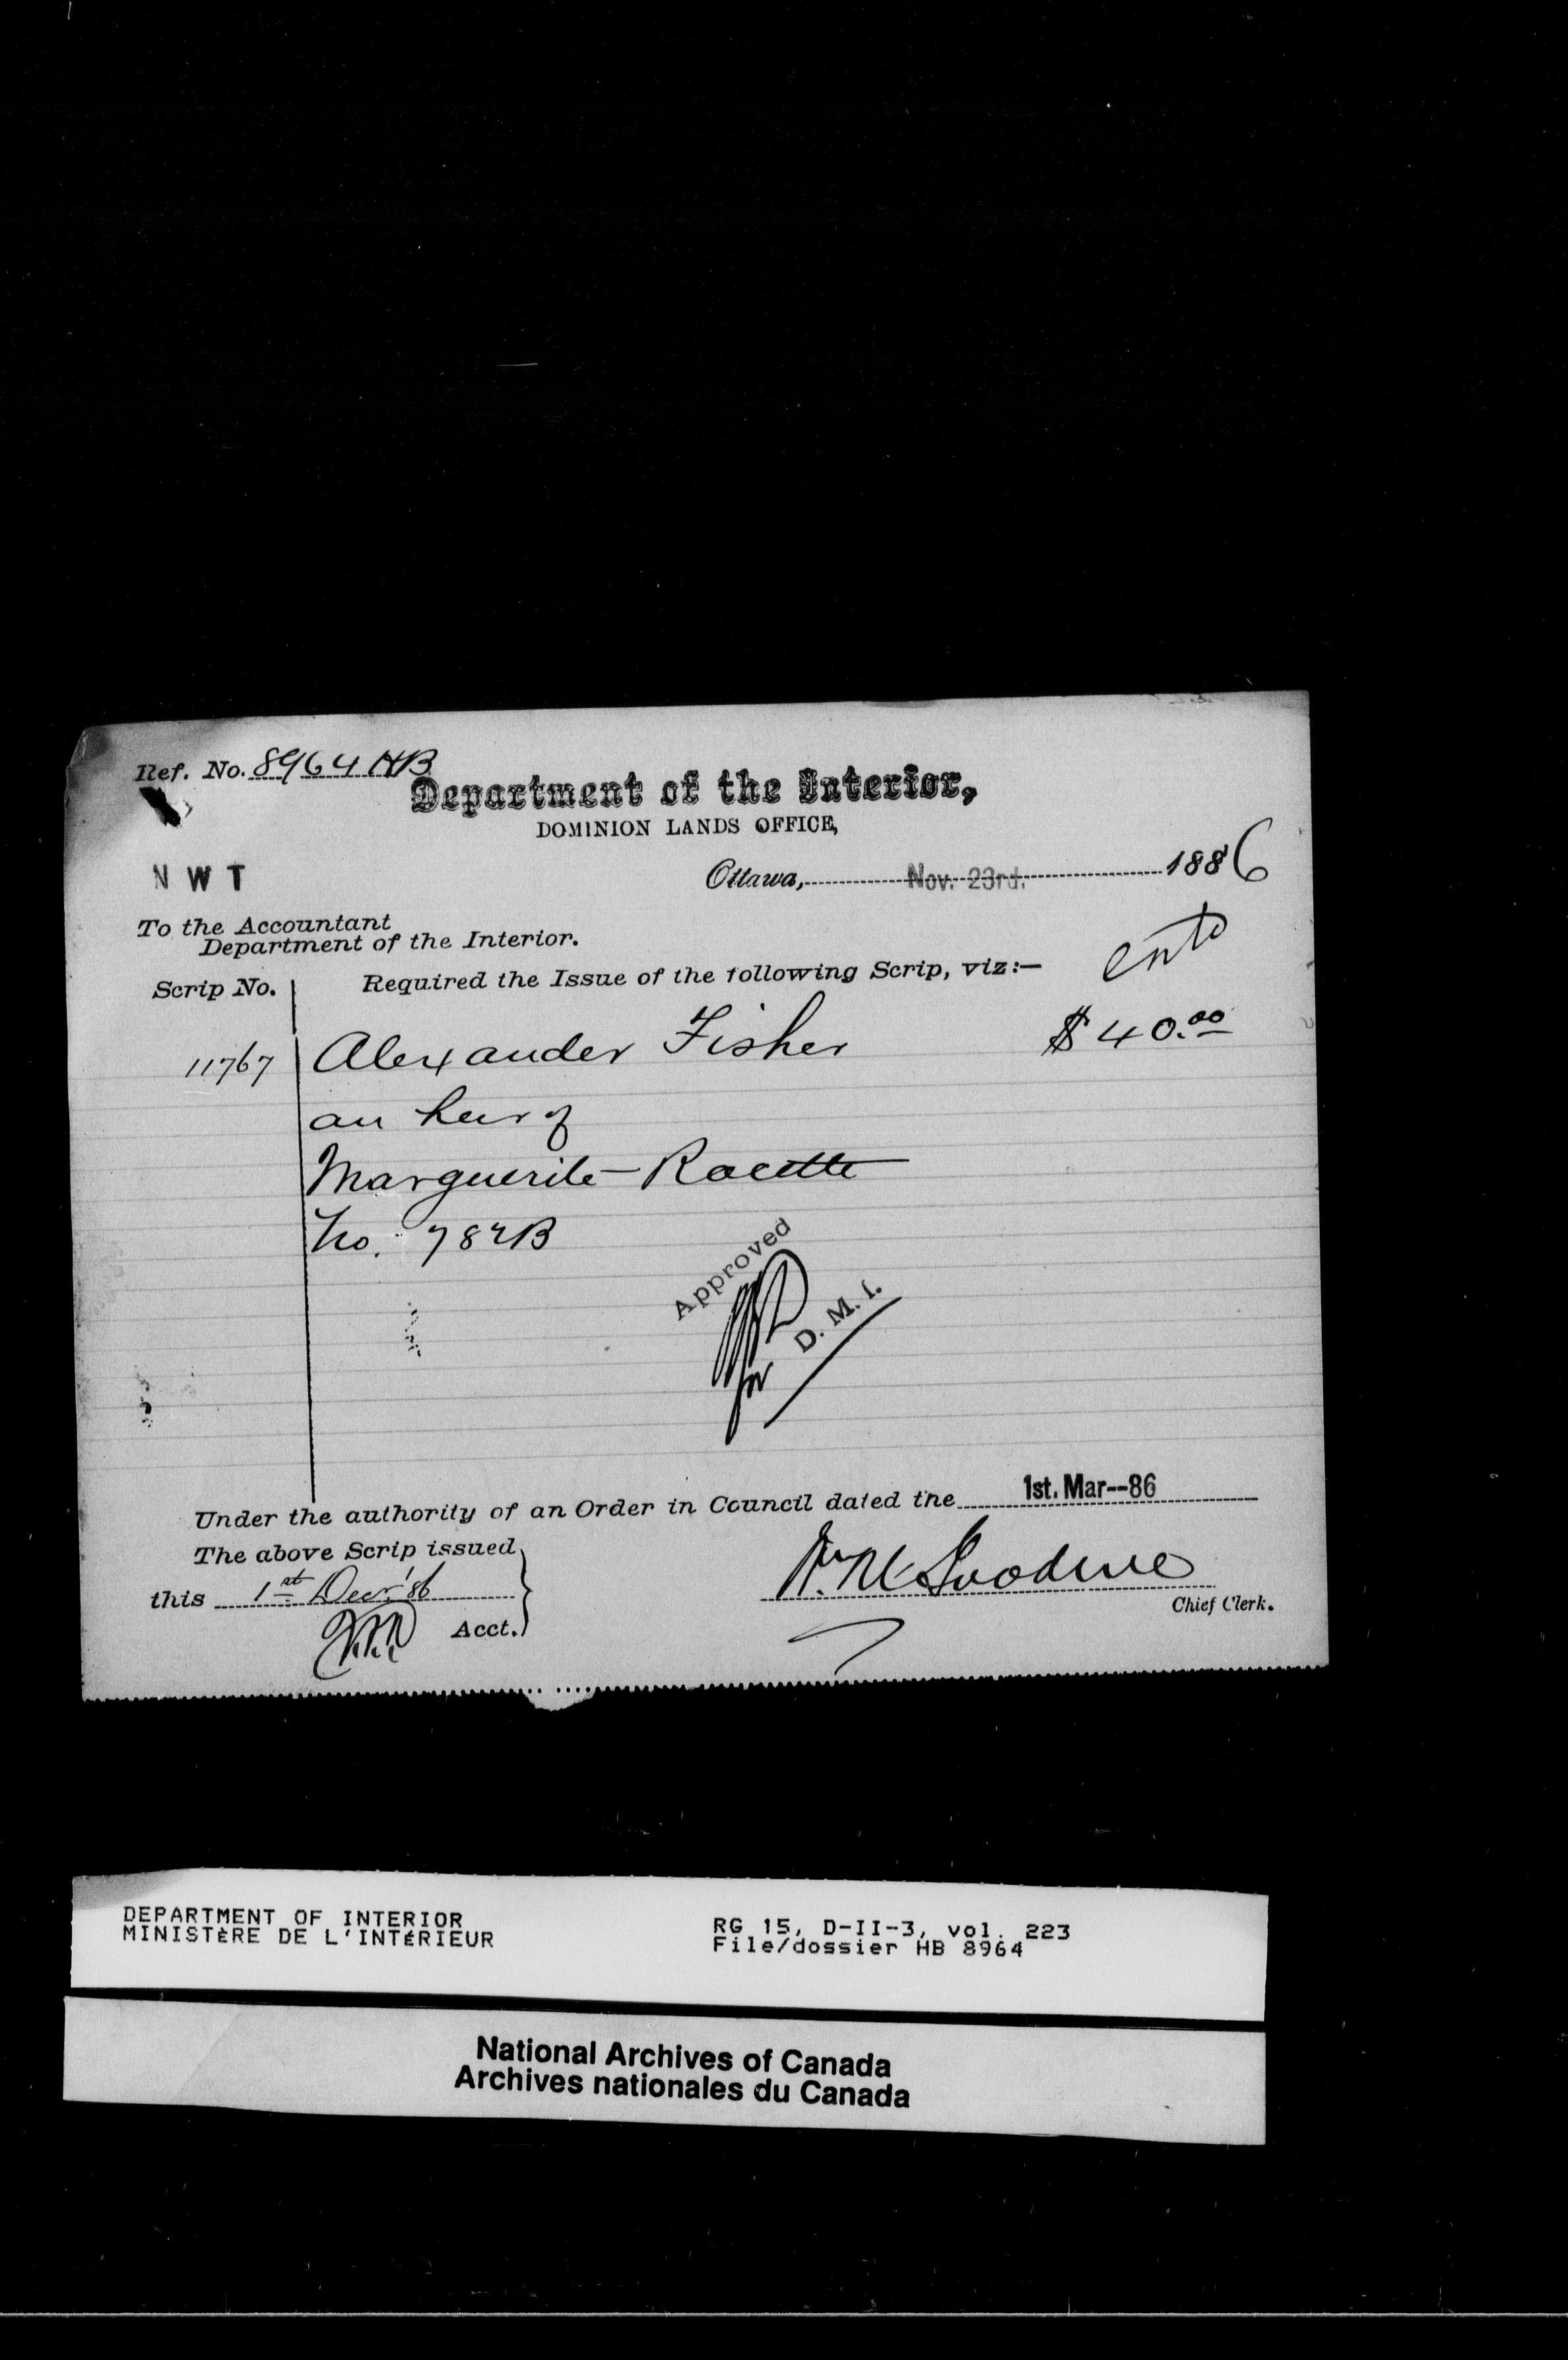 Ref. No. 8964 HB
Department of the Interior,
DOMINION LANDS OFFICE,
N W T
Ottawa, Nov. 23rd. 1886
To the Accountant
Department of the Interior.
entd
Scrip No. Required the Issue of the following Scrip, viz:—
11767 Alexander Fisher $40.00
an heir of
Marguerite Racette
No. 782B
Approved
for D. M. I.
Under the authority of an Order in Council dated the 1st. Mar--86
The above Scrip issued
this 1st Decr '86
Acct.
Chief Clerk.
DEPARTMENT OF INTERIOR
MINISTÈRE DE L'INTÉRIEUR
RG 15, D-II-3, vol. 223
File/dossier HB 8964
National Archives of Canada
Archives nationales du Canada